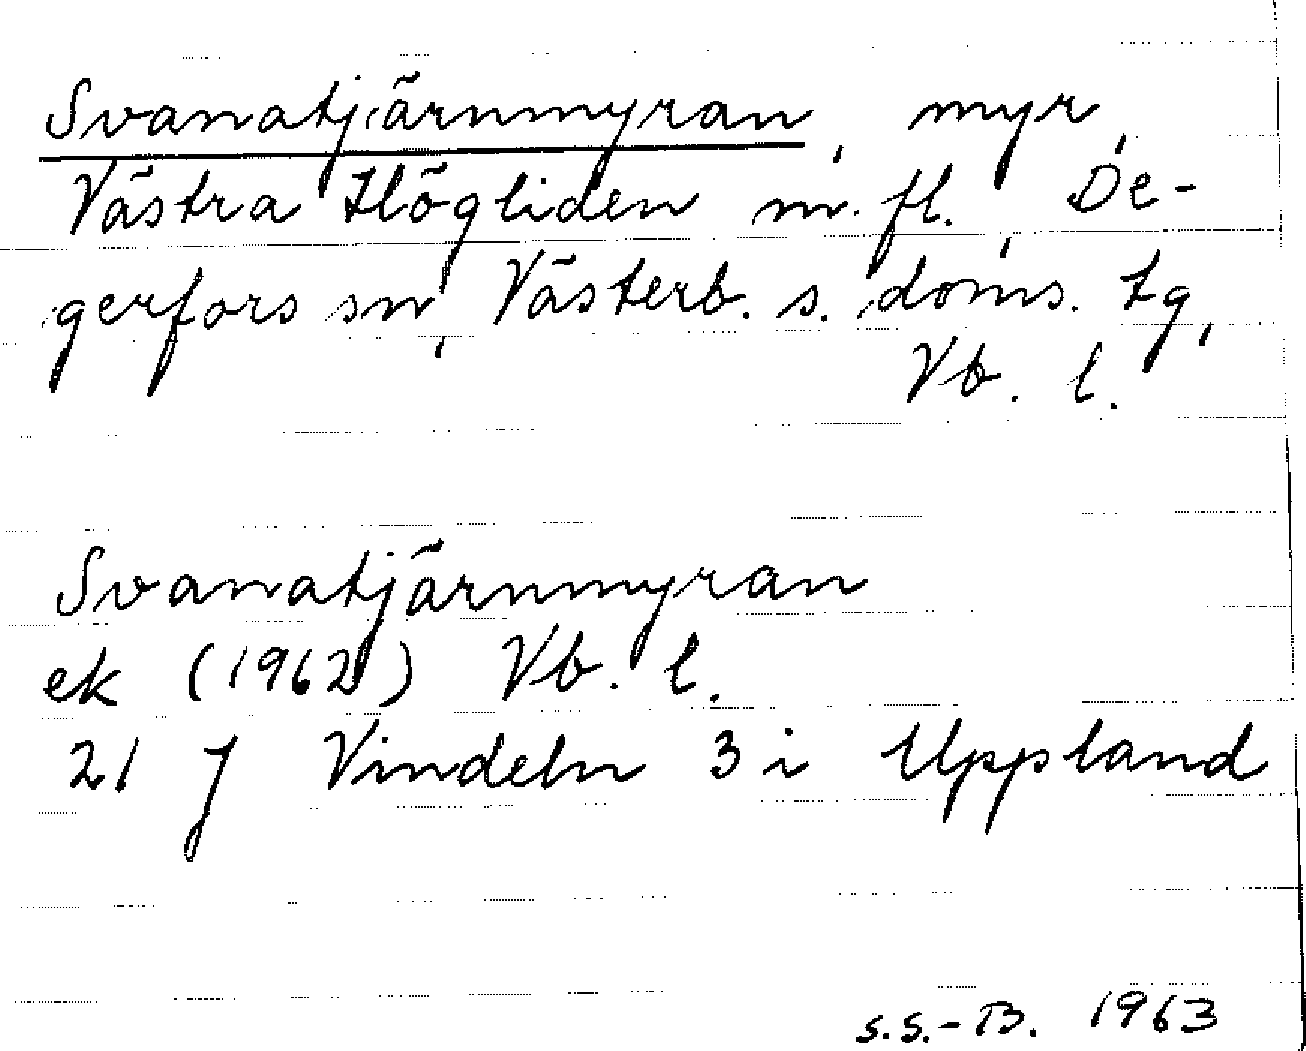 Svanatjärnmyran, myr,
Västra Högliden m. fl. De-
gerfors sn, Västerb. s. doms. tg,
Vb. l.
Svanatjärnmyran
ek (1962) Vb. l.
21 J Vindeln 3 i Uppland
s.s.-B. 1963